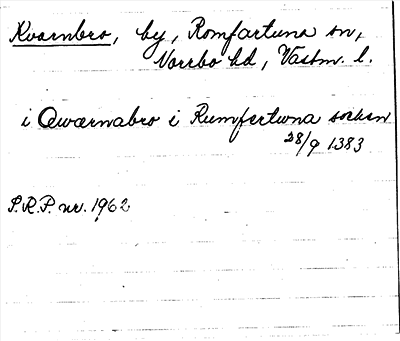 Kvarnbro, by, Romfartuna sn,
Norrbo hd, Västm. l.
i Qwærnabro i Rumfertwna sokhen
28/9 1383
S.R.P. nr. 1962